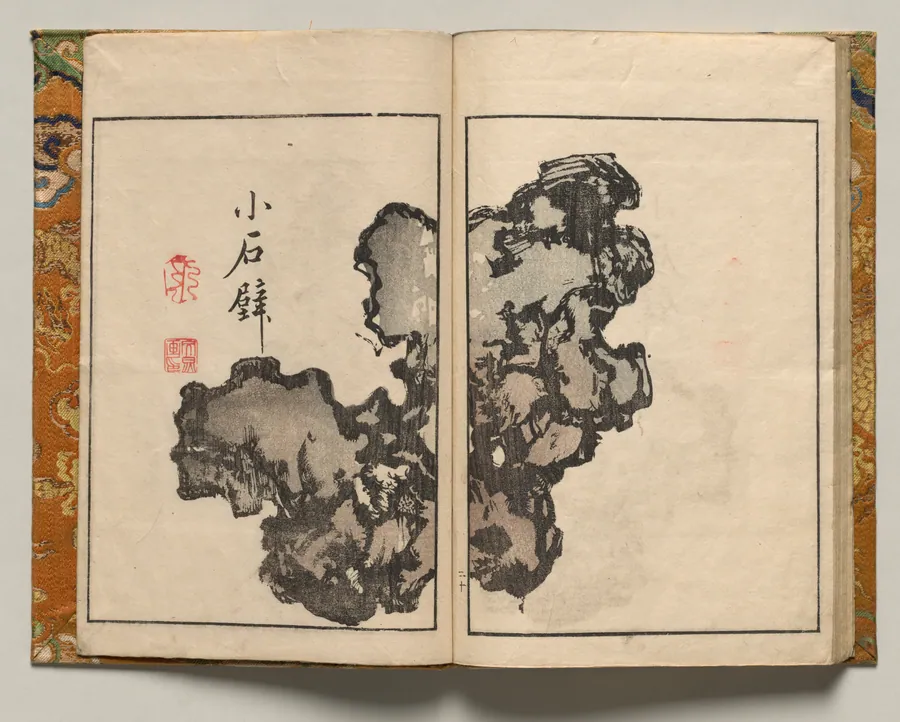 小石壁
二十